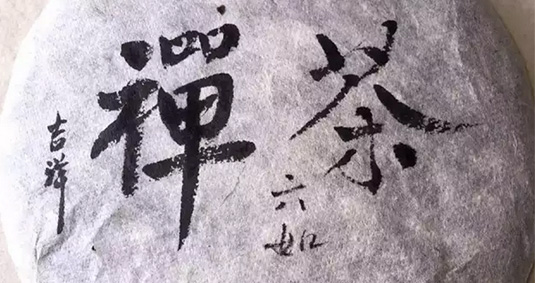 茶禪
六如
吉祥